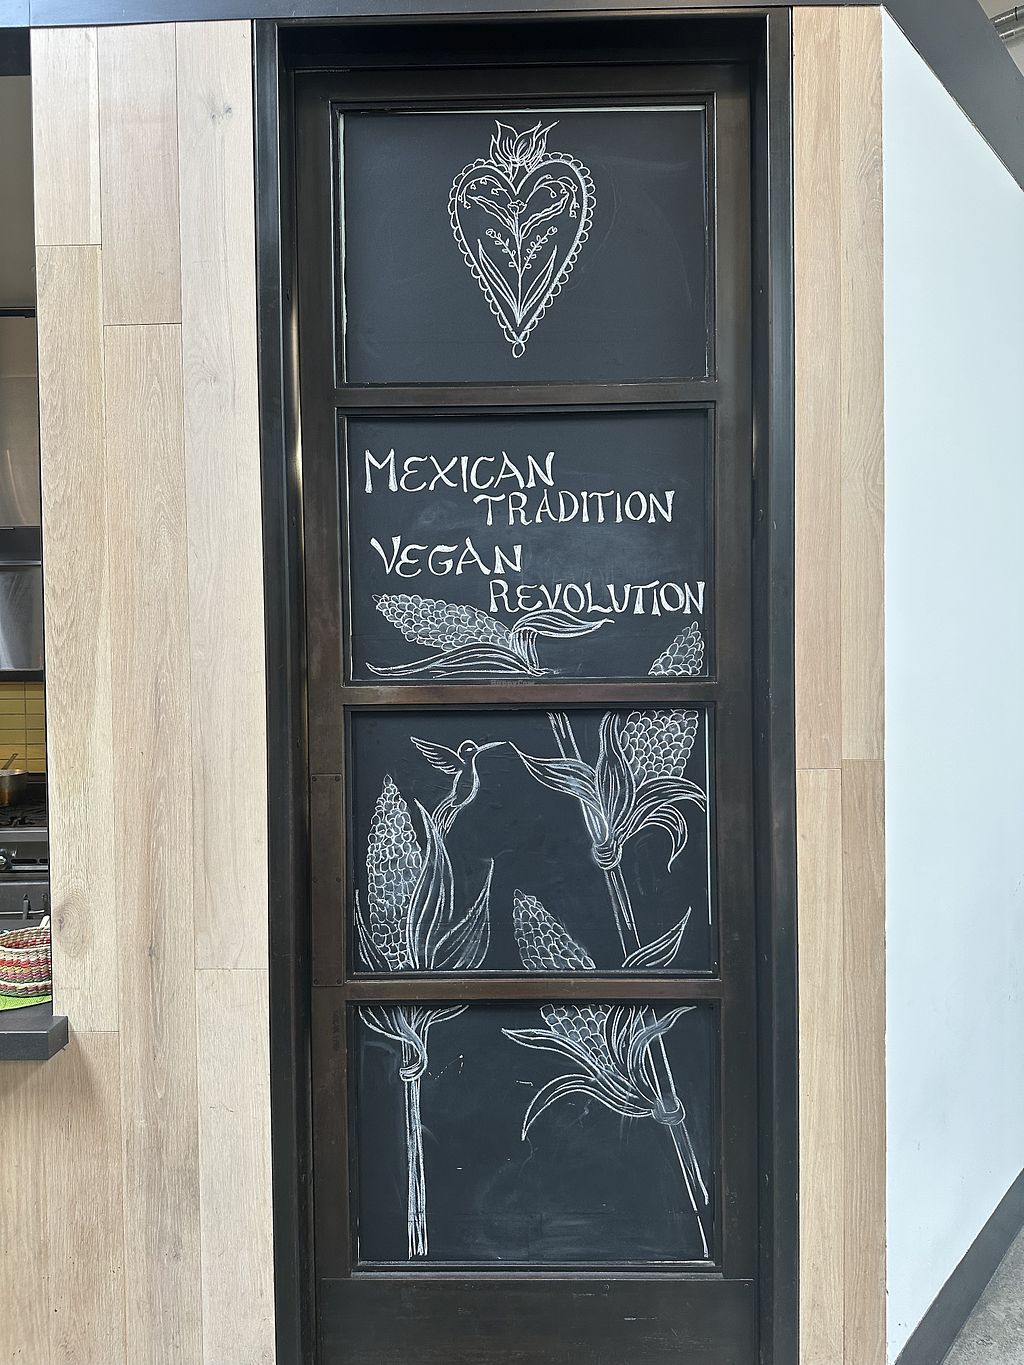 MEXICAN
TRADITION
VEGAN
REVOLUTION
HappyCow